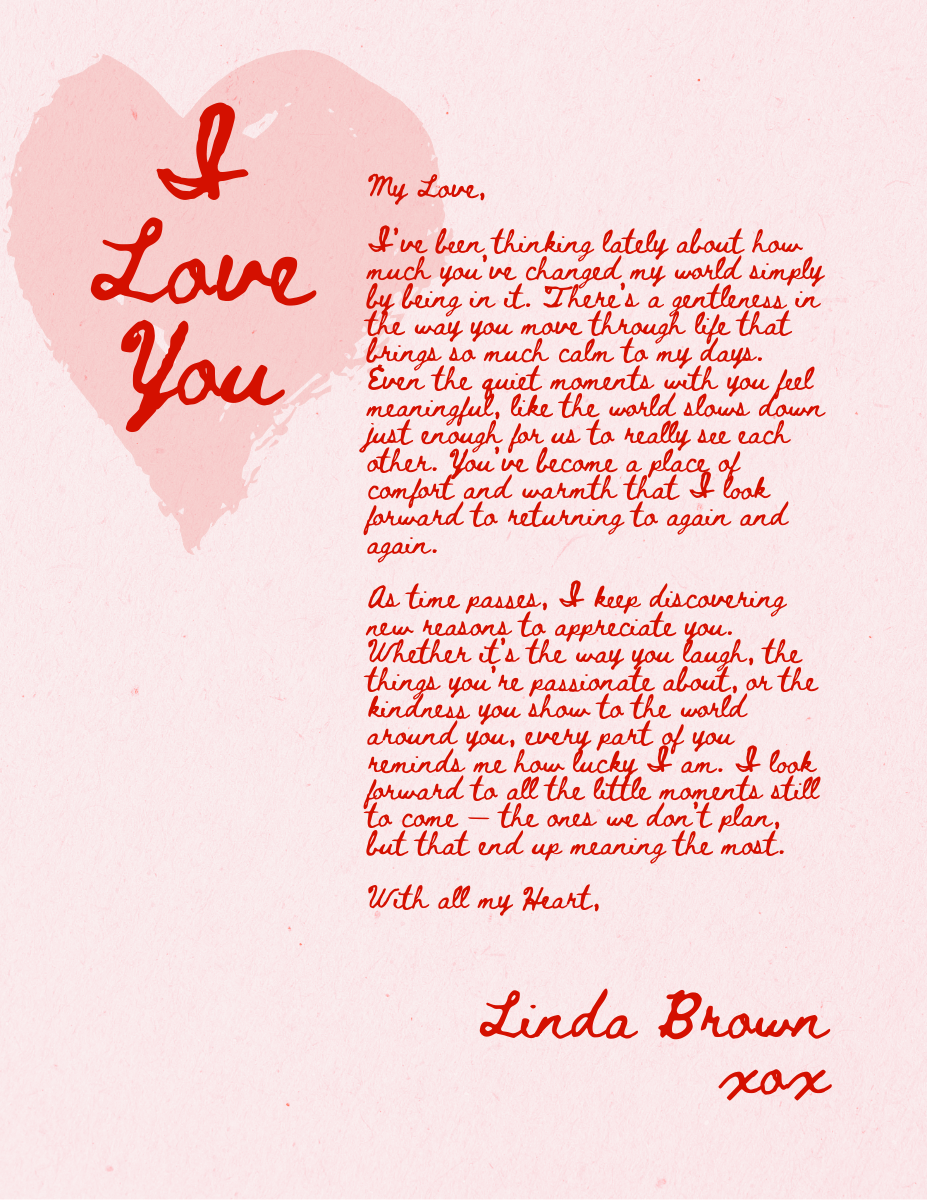 I
Love
You
My Love,
I've been thinking lately about how
much you've changed my world simply
by being in it. There's a gentleness in
the way you move through life that
brings so much calm to my days.
Even the quiet moments with you feel
meaningful, like the world slows down
just enough for us to really see each
other. You've become a place of
comfort and warmth that I look
forward to returning to again and
again.
As time passes, I keep discovering
new reasons to appreciate you.
Whether it's the way you laugh, the
things you're passionate about, or the
kindness you show to the world
around you, every part of you
reminds me how lucky I am. I look
forward to all the little moments still
to come — the ones we don't plan,
but that end up meaning the most.
With all my Heart,
Linda Brown
xox